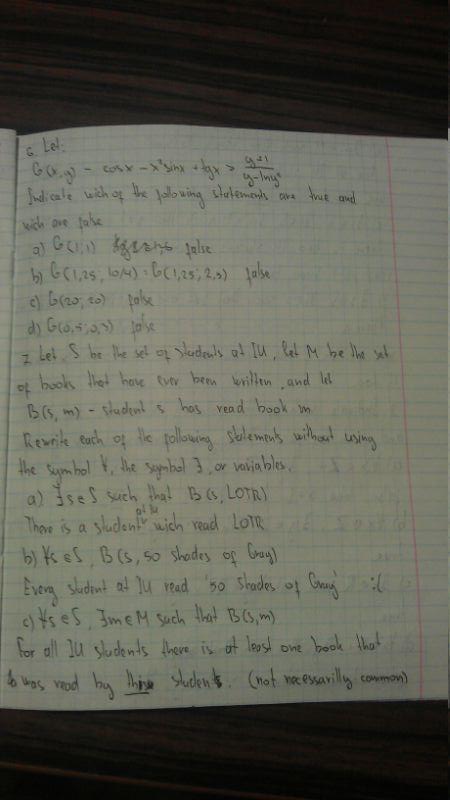 6. Let:
G(x,y) - cosx - x²sinx + tgx > y+1 / y-lny²
Indicate wich of the following statements are true and
wich are false
a) G(1,1) false
b) G(1,25; 10/4) = G(1,25; 2,5) false
c) G(20; 20) false
d) G(0,5; 0,3) false
7. Let S be the set of students at IU, let M be the set
of books that have ever been written, and let
B(s, m) - student s has read book m
Rewrite each of the following statements without using
the symbol ∀, the symbol ∃, or variables.
a) ∃s∈S such that B(s, LOTR)
There is a student at IU wich read LOTR
b) ∀s∈S, B(s, 50 shades of Gray)
Every student at IU read '50 Shades of Gray' :(
c) ∀s∈S, ∃m∈M such that B(s,m)
For all IU students there is at least one book that
was read by students. (not necessarilly common)